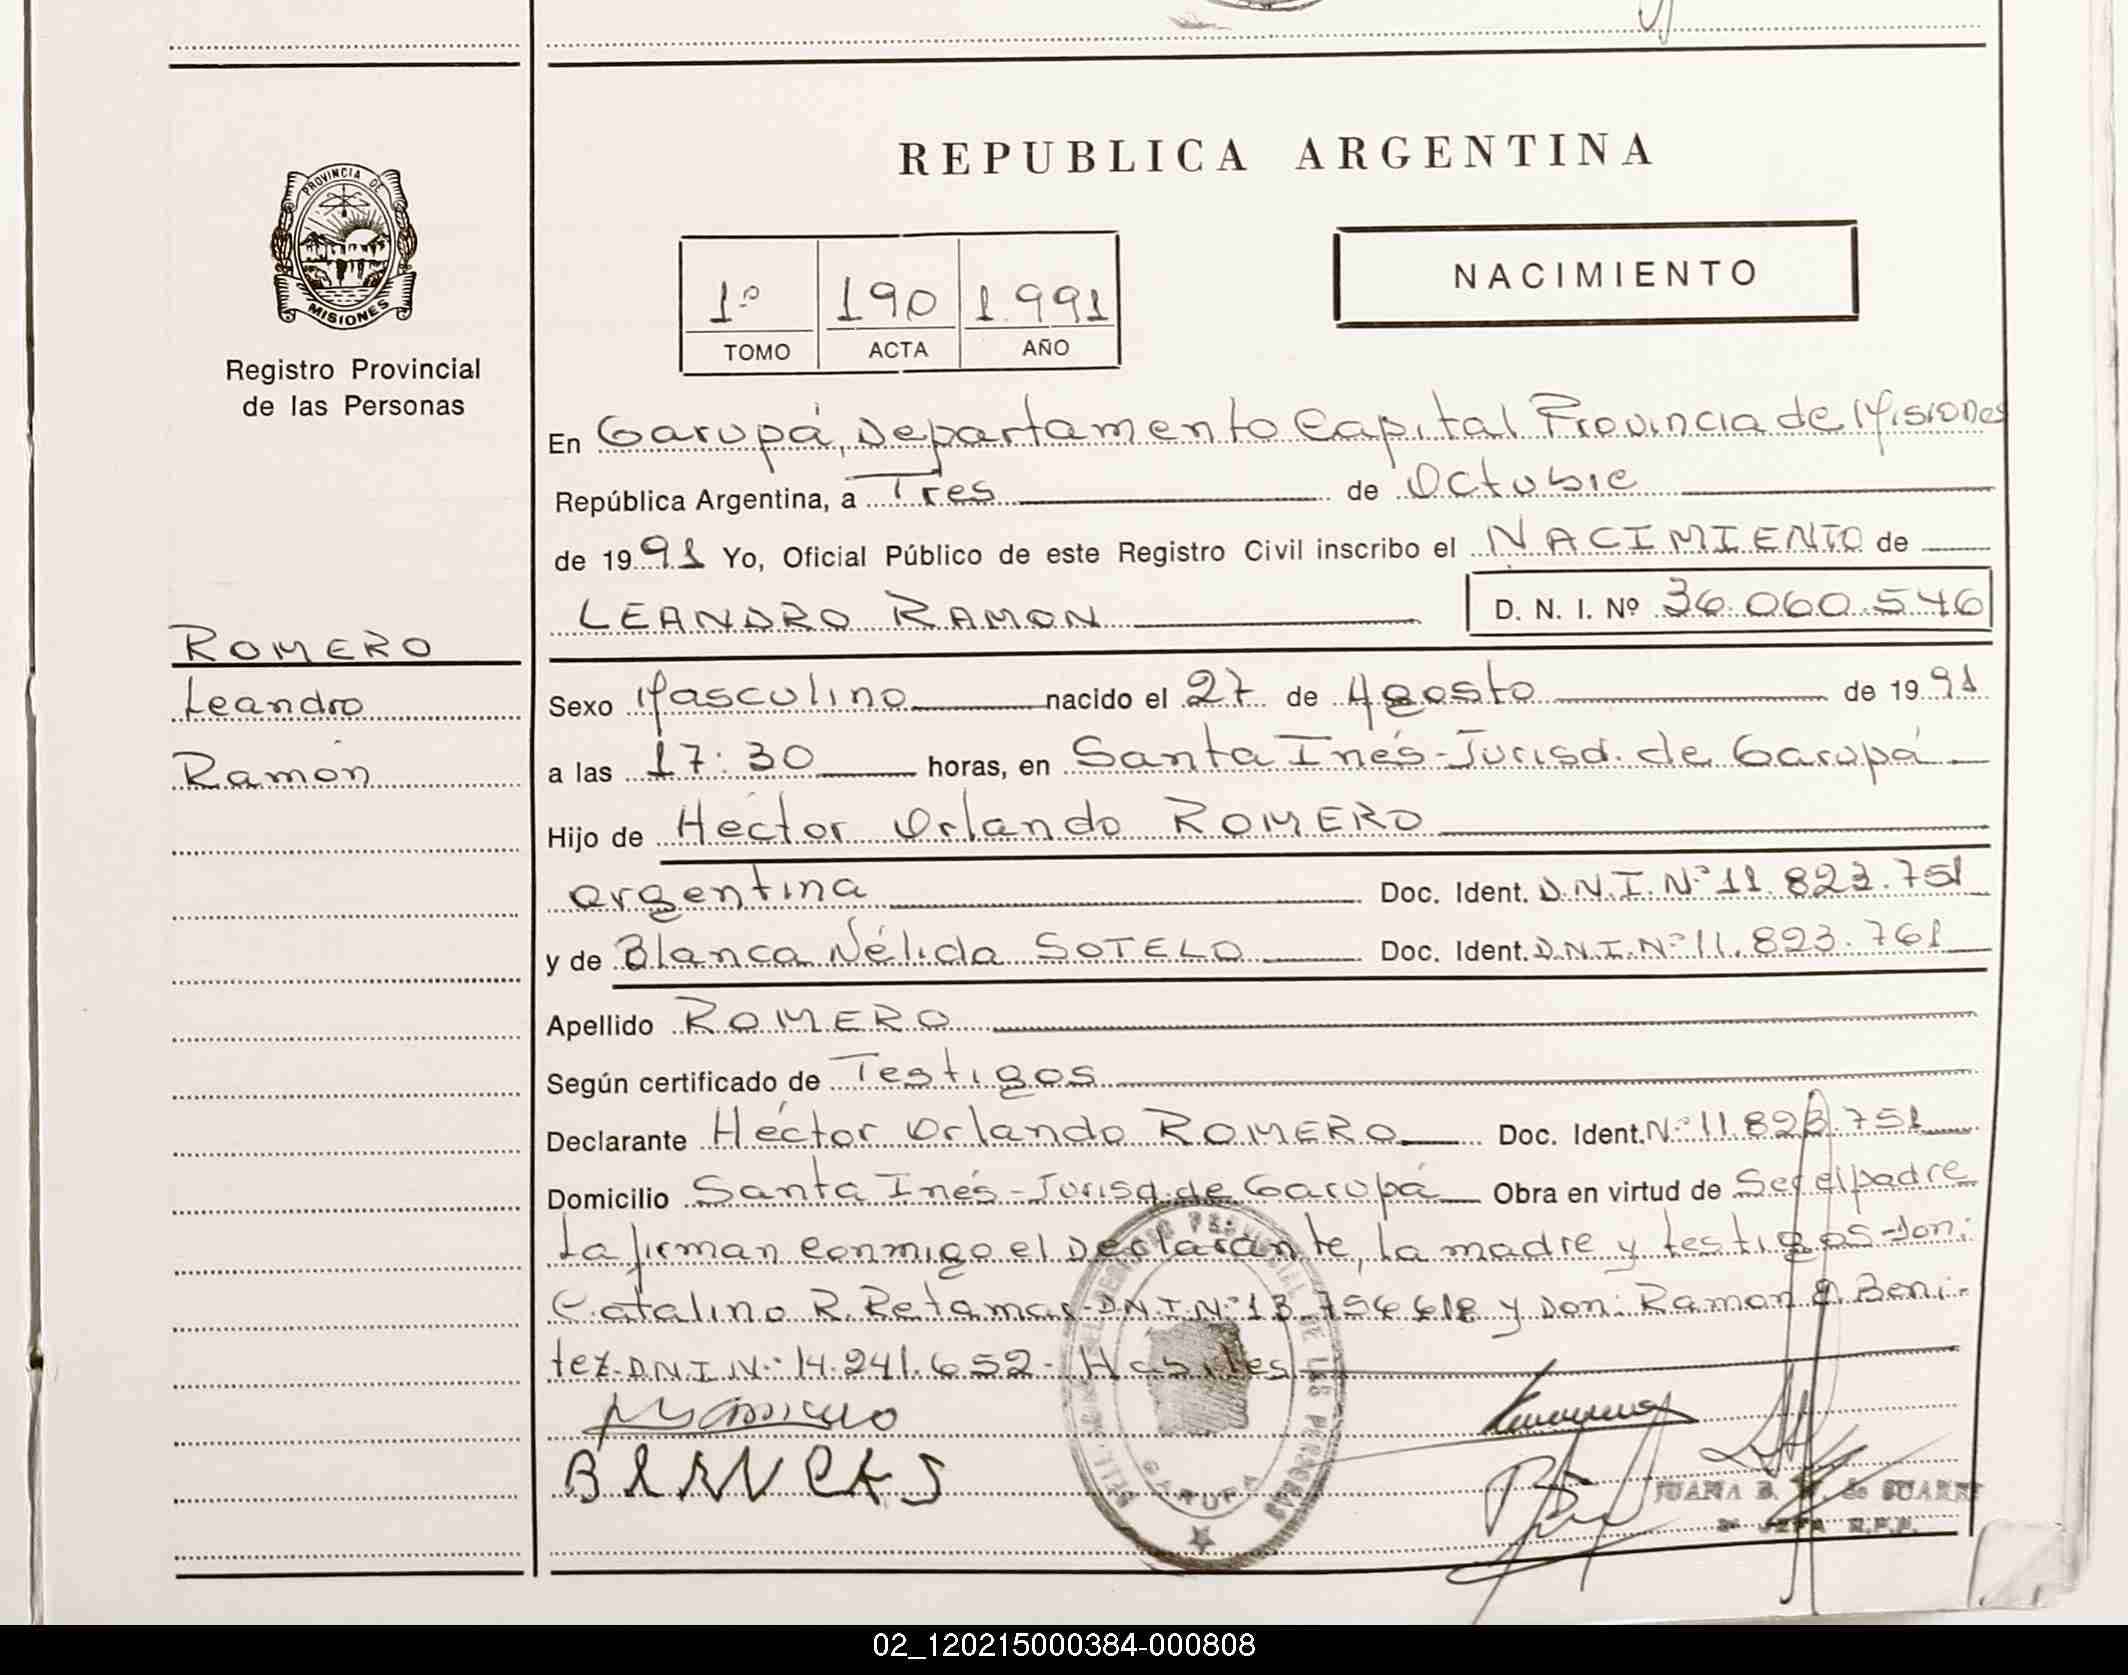 REPUBLICA ARGENTINA
PROVINCIA DE
MISIONES
Registro Provincial
de las Personas
1º 190 1.991
TOMO ACTA AÑO
NACIMIENTO
En Garupá, Departamento Capital Provincia de Misiones
República Argentina, a Tres de Octubre
de 1991 Yo, Oficial Público de este Registro Civil inscribo el NACIMIENTO de
LEANDRO RAMON D. N. I. Nº 36.060.546
ROMERO
Leandro
Ramón
Sexo Masculino nacido el 27 de Agosto de 1991
a las 17:30 horas, en Santa Inés-Jurisd. de Garupá
Hijo de Héctor Orlando ROMERO
argentina Doc. Ident. D.N.I.Nº 11.823.751
y de Blanca Nélida SOTELO Doc. Ident. D.N.I.Nº 11.823.761
Apellido ROMERO
Según certificado de Testigos
Declarante Héctor Orlando ROMERO Doc. Ident. Nº 11.823.751
Domicilio Santa Inés-Jurisd. de Garupá Obra en virtud de Ser el padre
La firman conmigo el Declarante, la madre y testigos-don:
Catalino R. Retamar-D.N.I.Nº 13.754.618 y Don: Ramon Beni-
tez-D.N.I.Nº 14.241.652- Habiles
BLANCA S
GARUPA
JUANA B. de SUAREZ
JEFA R.P.P.
02_120215000384-000808